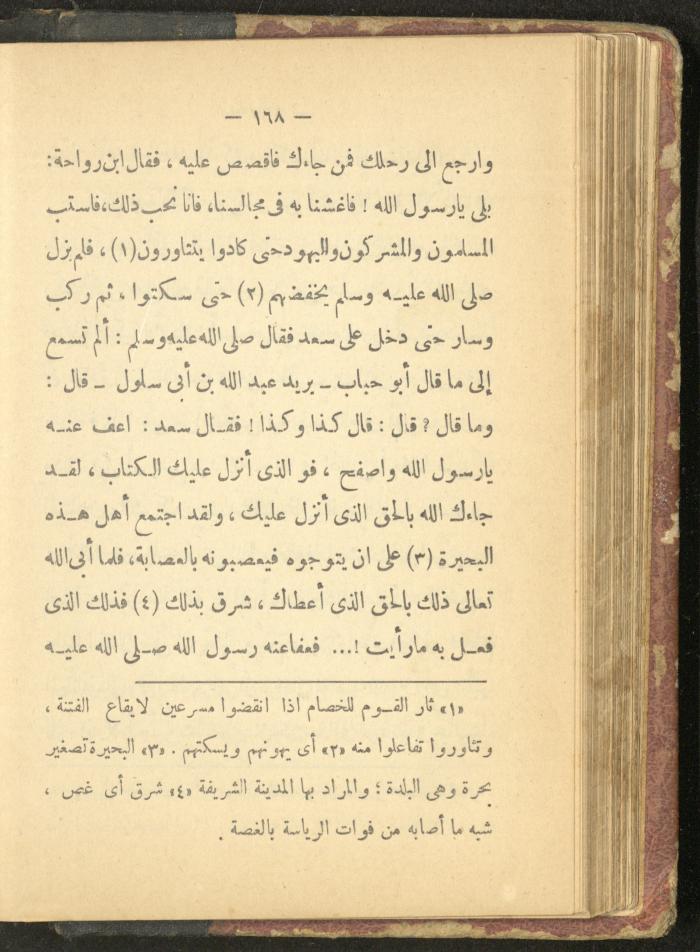 — ١٦٨ —
وارجع الى رحلك فمن جاءك فاقصص عليه ، فقال ابن رواحة :
بلى يارسول الله ! فاغشنا به فى مجالسنا، فانا نحب ذلك، فاستب
المسلمون والمشركون واليهود حتى كادوا يتثاورون (١) ، فلم يزل
صلى الله عليـه وسلم يخفضهم (٢) حتى سـكتوا ، ثم ركب
وسار حتى دخل على سعد فقال صلى الله عليه وسلم : ألم تسمع
إلى ما قال أبو حباب ـ يريد عبد الله بن أبى سلول ـ قال :
وما قال ? قال : قال كـذا وكـذا ! فقـال سعد : اعف عنـه
يارسول الله واصفح ، فو الذى أنزل عليك الكتاب ، لقـد
جاءك الله بالحق الذى أنزل عليك ، ولقد اجتمع أهل هـذه
البحيرة (٣) على ان يتوجوه فيعصبونه بالعصابة، فلما أبى الله
تعالى ذلك بالحق الذى أعطاك ، شرق بذلك (٤) فذلك الذى
فعـل به مارأيت !... فعفاعنه رسول الله صـلى الله عليـه
«١» ثار القـوم للخصام اذا انقضوا مسرعين لايقاع الفتنة ،
وتثاوروا تفاعلوا منه «٢» أى يهونهم ويسكتهم . «٣» البحيرة تصغير
بحرة وهى البلدة ؛ والمراد بها المدينة الشريفة «٤» شرق أى غص ،
شبه ما أصابه من فوات الرياسة بالغصة .